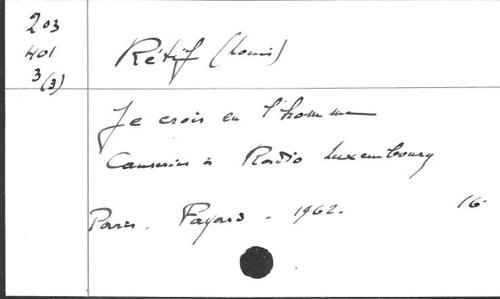 203
401
3(3)
Rétif (Louis)
Je crois en l'homme
Causeries à Radio Luxembourg
Paris. Fayard. 1962. 16.